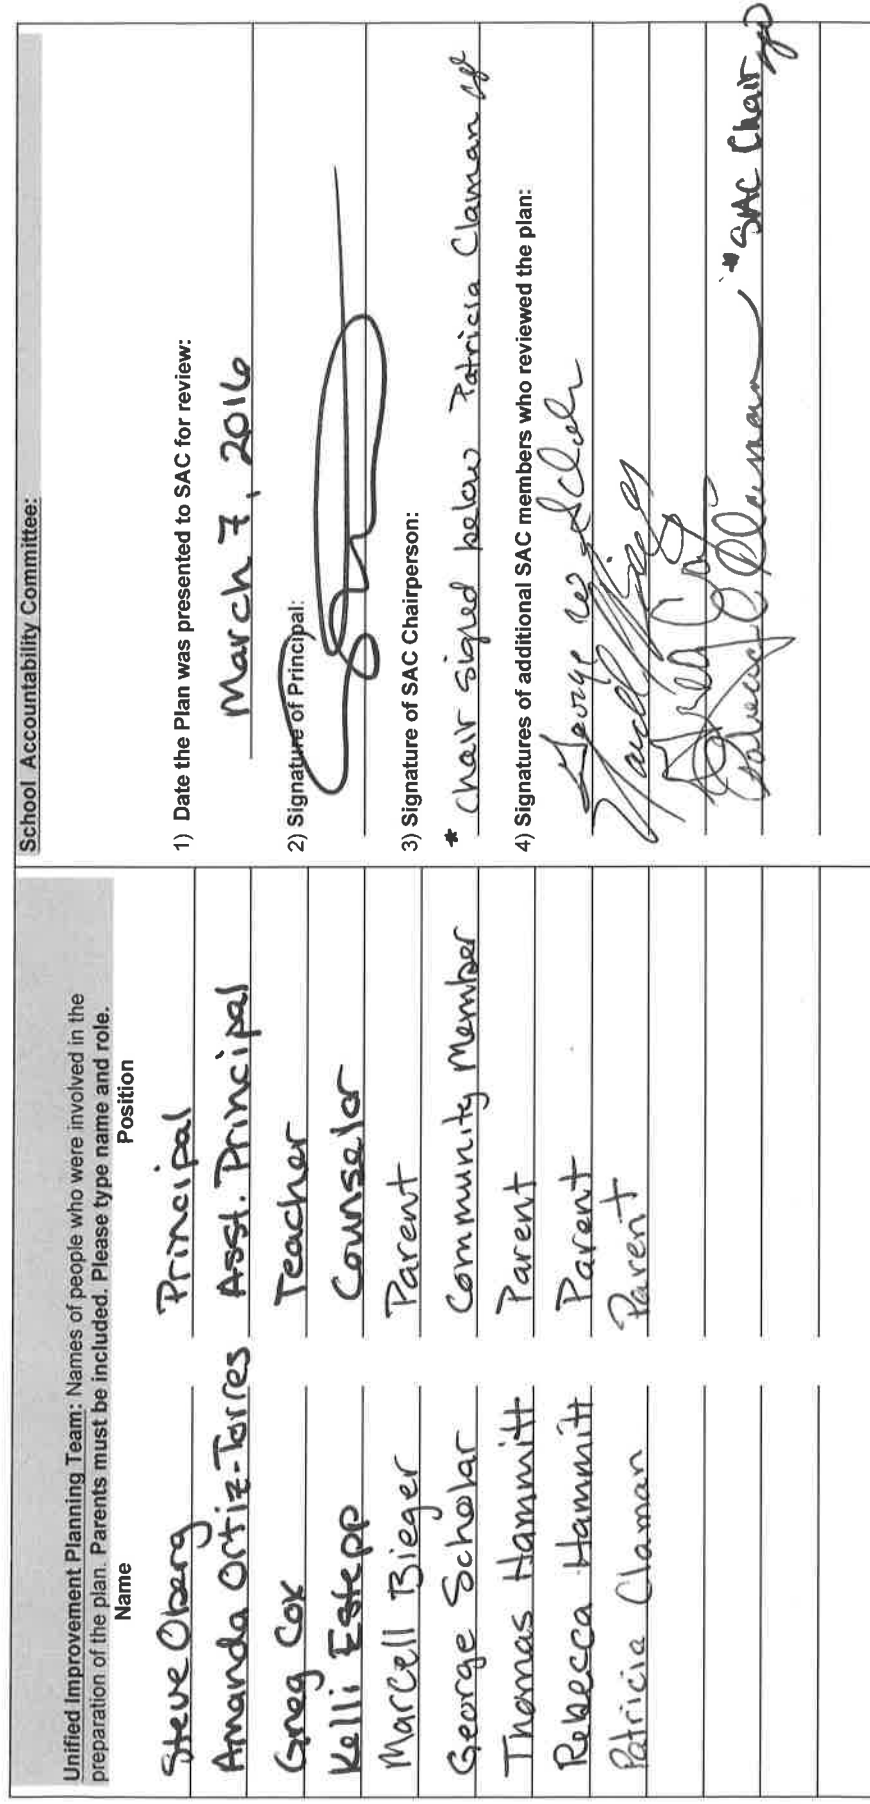 Unified Improvement Planning Team: Names of people who were involved in the
preparation of the plan. Parents must be included. Please type name and role.
Name Position
Steve Oberg Principal
Amanda Ortiz-Torres Asst. Principal
Greg Cox Teacher
Kelli Estepp Counselor
Marcell Bieger Parent
George Scholar Community Member
Thomas Hammitt Parent
Rebecca Hammitt Parent
Patricia Claman Parent
School Accountability Committee:
1) Date the Plan was presented to SAC for review:
March 7, 2016
2) Signature of Principal:
3) Signature of SAC Chairperson:
* Chair signed below Patricia Claman
4) Signatures of additional SAC members who reviewed the plan:
George W. Scholar
Claman *SAC Chair